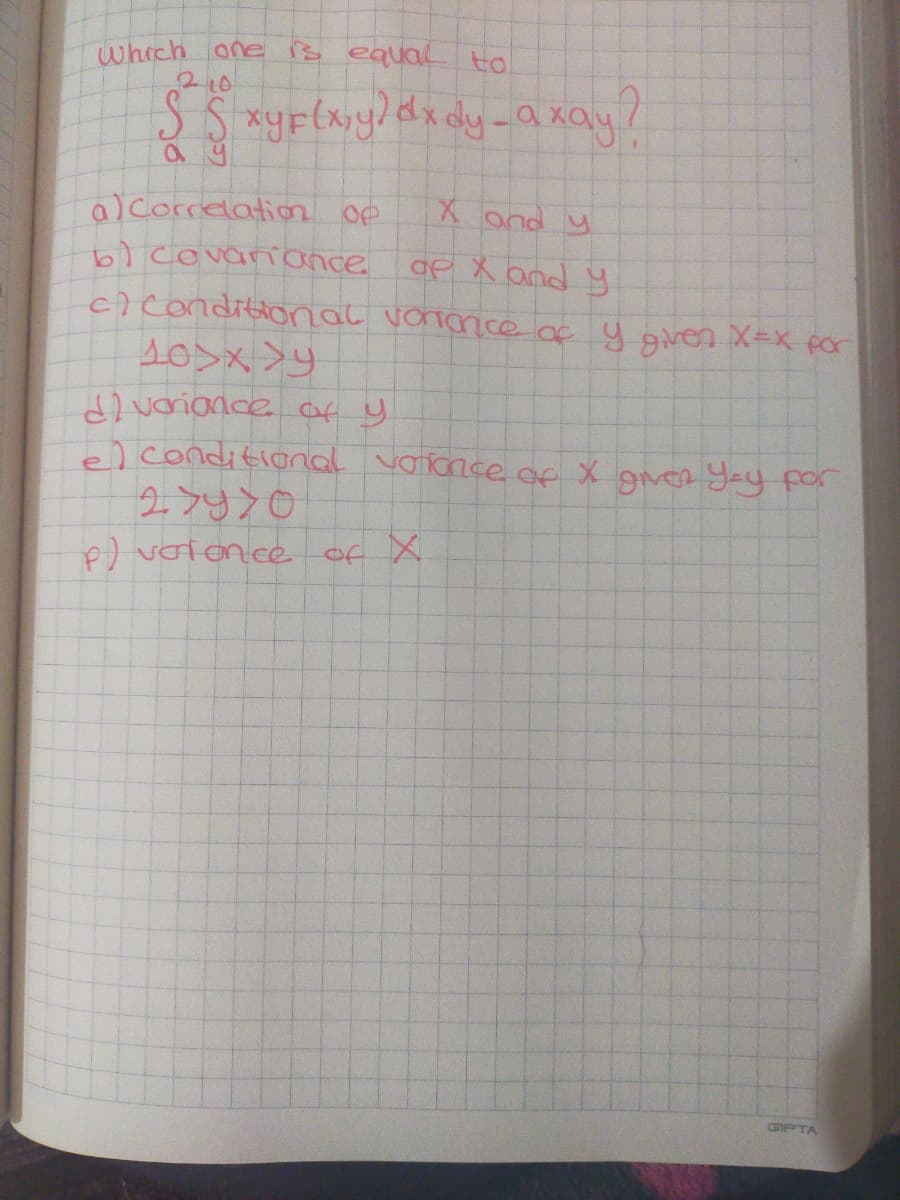 Which one is equal to
2 10
∫ ∫ xyF(x,y) dx dy - axay?
a y
a) correlation of X and y
b) covariance of X and y
c) conditional variance of y given X=x for
10>x>y
d) variance of y
e) conditional variance of X given y=y for
2>y>0
f) variance of X
GIPTA